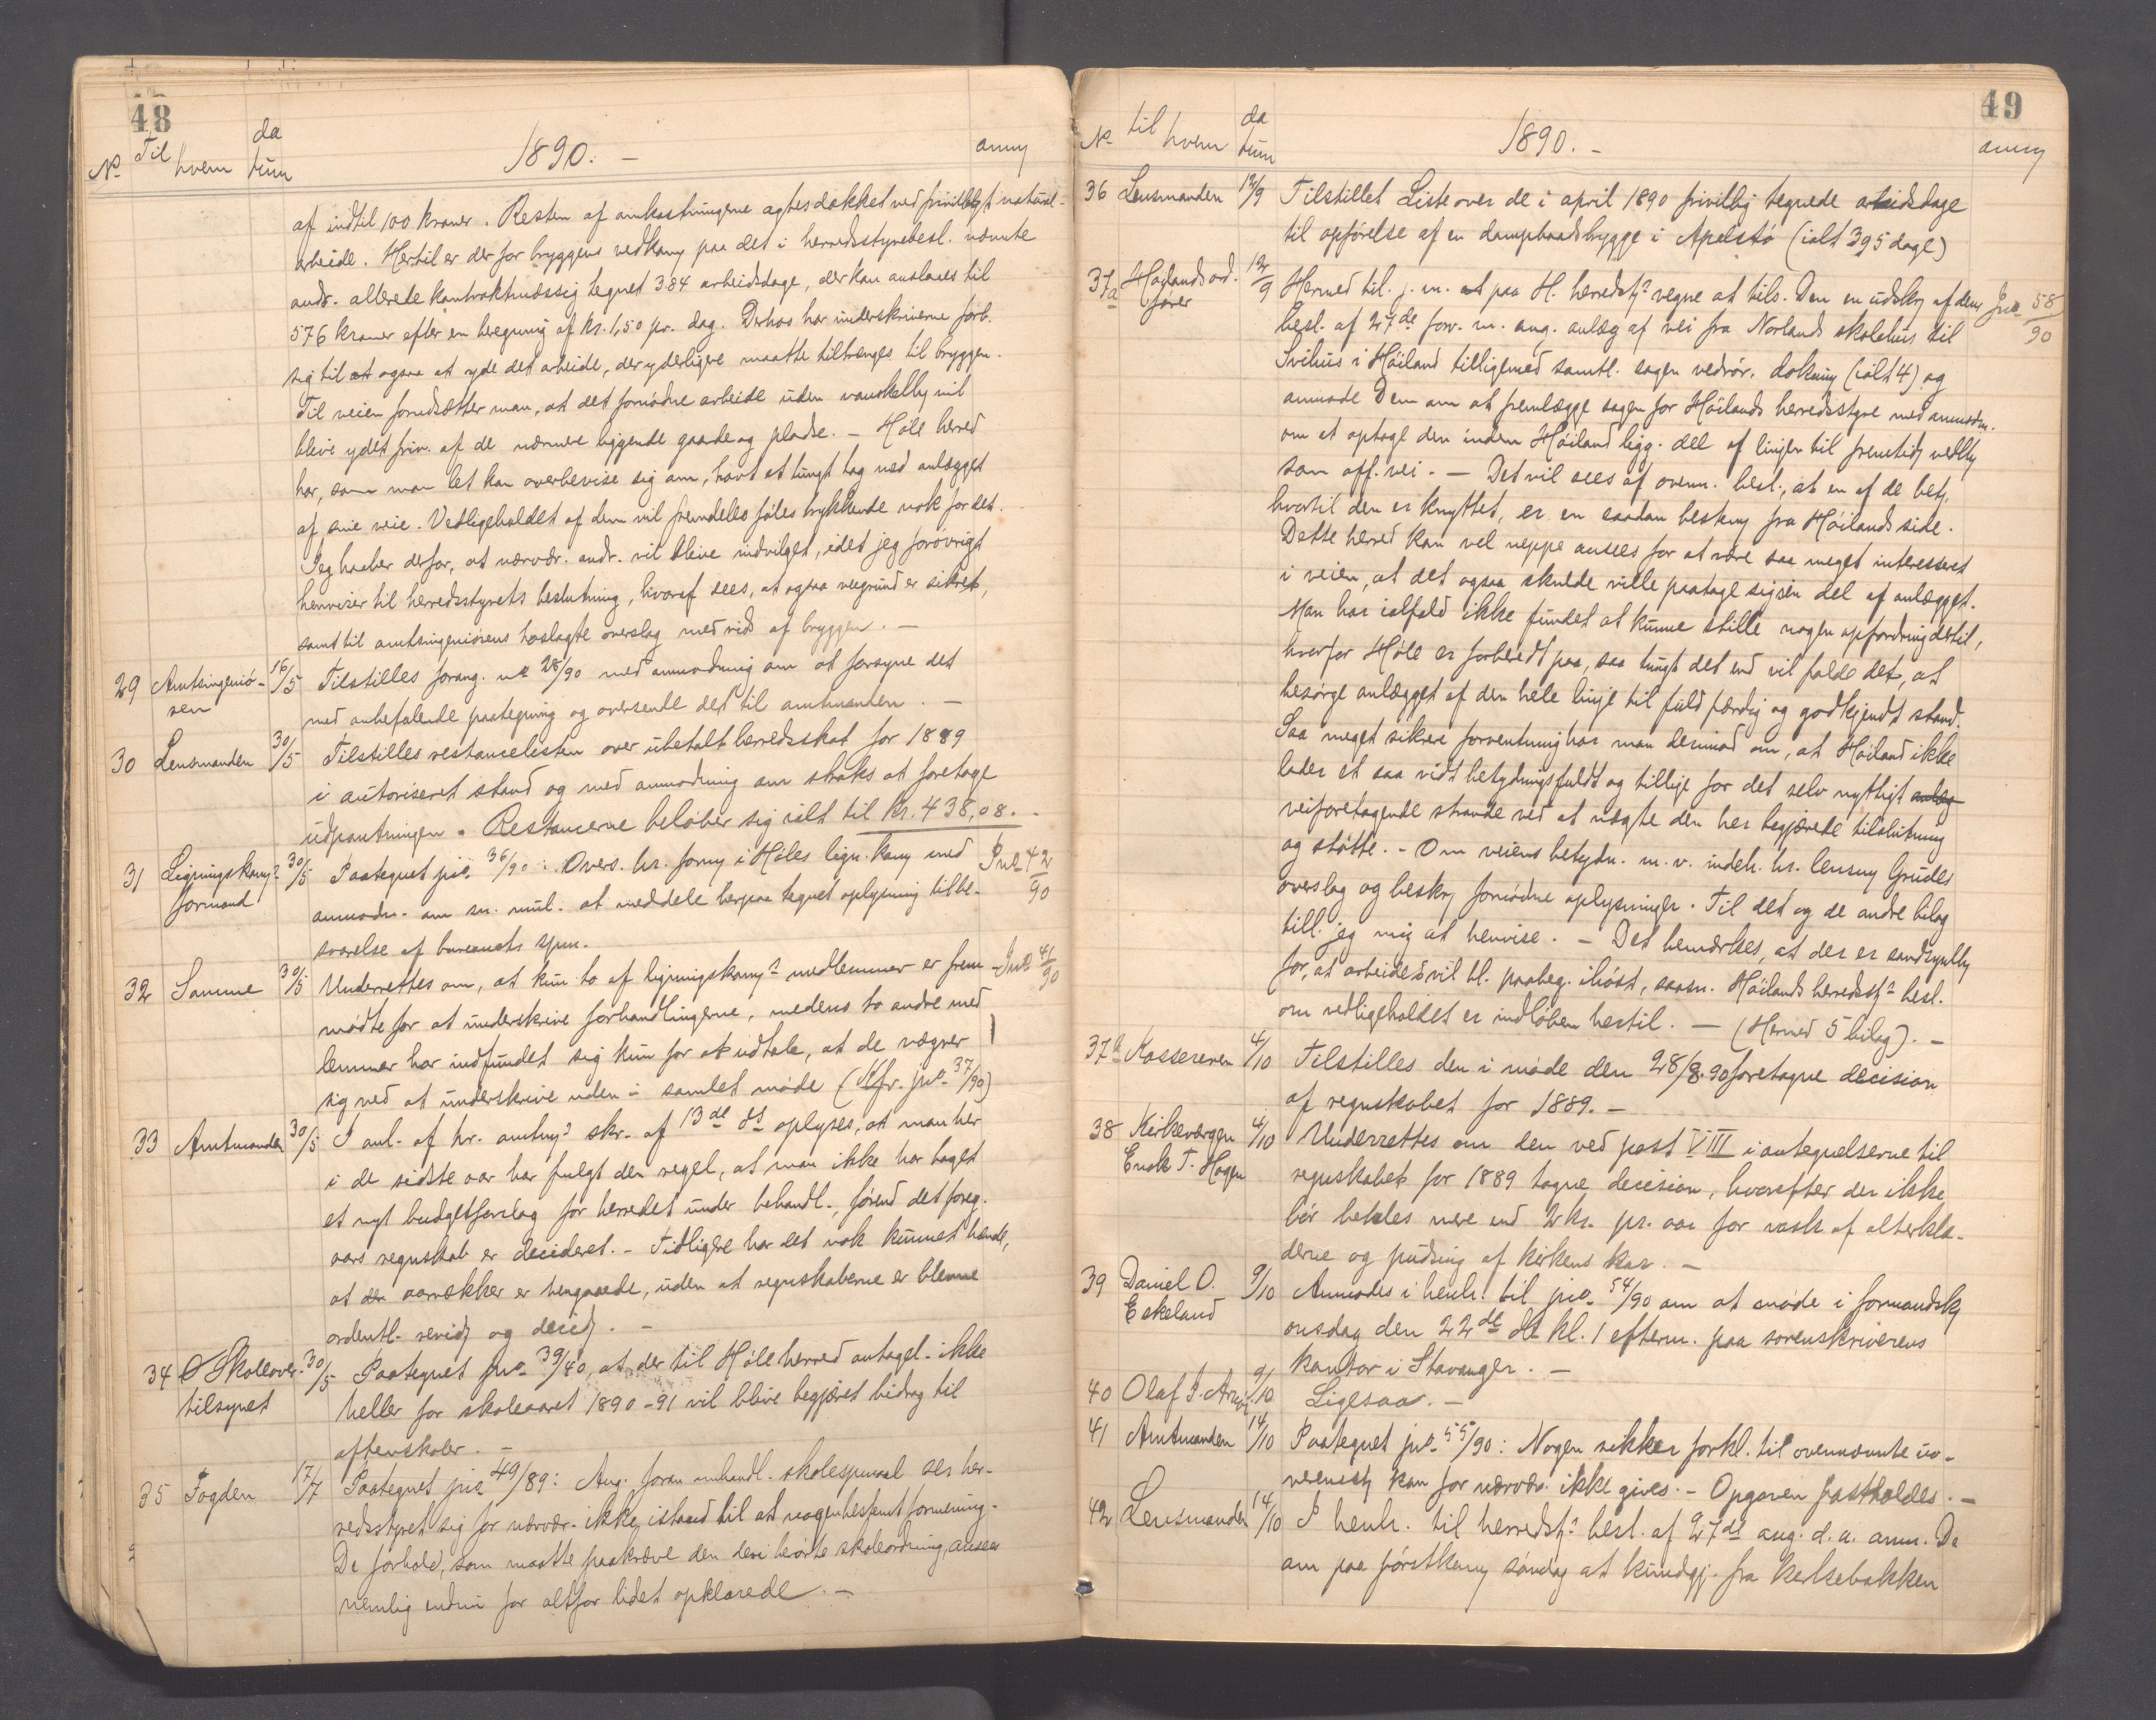 48
N. Til hvem da tum 1890. — anm
af indtil 100 kroner. Resten af omkostningerne agtes dækket ved frivilligt natural-
arbeide. Hertil er der for bryggens vedkom paa det i herredsstyrebesl. nævnte
andr. allerede kontraktmæssig tegnet 384 arbeidsdage, der kan ansløaes til
576 kroner efter en beregning af kr. 1,50 pr. dag. Derhos har underskriverne forb.
sig til at ogsaa at yde det arbeide, der yderligere maatte tiltrænges til bryggen.
Til veien forudsætter man, at det fornødne arbeide uden vanskelighed vil
blive ydet friv. af de nærmere liggende gaarde og pladse. — Høle herred
har, som man let kan overbevise sig om, havt et tungt tag med anlægget
af sine veie. Vedligeholdet af dem vil fremdeles føles trykkende nok for det.
Jeg haaber derfor, at nærvær. andr. vil blive indvilget, idet jeg forøvrigt
henviser til herredsstyrets beslutning, hvoraf sees, at ogsaa veigrund er sikret,
samt til amtsingeniørens hoslagte overslag med rids af bryggen. —
29 Amtsingeniø- 16/5 Tilstilles forang. no 28/90 med anmodning om at forsyne det
ren med anbefalende paategning og oversende det til amtmanden. —
30 Lensmanden 30/5 Tilstilles restancelisten over ubetalt herredsskat for 1889
i autoriseret stand og med anmodning om straks at foretage
udpantningen. Restancerne beløber sig ialt til Kr. 438,08. —
31 Ligningskoms 30/5 Paategnet jno. 36/90: Overs. hr. form i Høles lign. kom med Jno 42/90
formand anmodn. om sn. mul. at meddele herpaa tegnet oplysning til be-
svarelse af bureauets spm.
32 Samme 30/5 Underrettes om, at kun to af ligningskoms medlemmer er frem- Jno 41/90
mødte for at underskrive forhandlingerne, medens to andre med
lemmer har indfundet sig kun for at udtale, at de vægrer
sig ved at underskrive uden i samlet møde (Kfr. jno. 37/90)
33 Amtmanden 30/5 I anl. af hr. amtms skr. af 13de ds oplyses, at man her
i de sidste aar har fulgt den regel, at man ikke har taget
et nyt budgetforslag for herredet under behandl., førend det foreg.
aars regnskab er decideret. — Tidligere har det nok kunnet hænde,
at der aarrækker er hengaaede, uden at regnskaberne er blevne
ordentl. revid og decid. —
34 Skoleover- 30/5 Paategnet jno. 39/90, at der til Høle herred antagel. ikke
tilsynet heller for skoleaaret 1890-91 vil blive begjæret bidrag til
aftenskoler. —
35 Fogden 17/7 Paategnet jno 49/89: Ang. foran omhandl. skolespmaal ser her-
redsstyret sig for nærvær. ikke istand til at nogen bestemt formening.
De forhold, som maatte paakræve den deri berørte skoleordning, ansees
nemlig endnu for altfor lidet opklarede. —
49
N. til hvem da tum 1890. — anm
36 Lensmanden 12/9 Tilstillet Liste over de i april 1890 frivillig tegnede arbeidsdage
til opførelse af en dampbaadsbrygge i Apelstø (ialt 395 dage)
37a Høilands ord- 12/9 Hermed till. j. m. at paa H. herredsts vegne at tils. Dem en udskr af dens Jno 58/90
fører besl. af 27de forr. m. ang. anlæg af vei fra Norlands skolehus til
Svihus i Høiland tilligemed samtl. sagen vedrør. dokum (ialt 4) og
anmode Dem om at fremlægge sagen for Høilands herredsstyre med anmodn.
om at optage den inden Høiland ligg. del af linjen til fremtid vedlh
som off. vei. — Det vil sees af ovenn. besl., at en af de bet.
hvortil den er knyttet, er en saadan beskr fra Høilands side.
Dette herred kan vel neppe ansees for at være saa meget interesseret
i veien, at det ogsaa skulde ville paatage sig sin del af anlægget.
Man har ialfald ikke fundet at kunne stille nogen opfordring dertil,
hvorfor Høle er forberedt paa, saa tungt det end vil falde det, at
besørge anlægget af den hele linje til fuld færdig og godkjendt stand.
Saa meget sikrere forventning har man derimod om, at Høiland ikke
lader et saa vidt betydningsfuldt og tillige for det selv nyttigt anlæg
veiforetagende strande ved at nægte den her begjærede tilslutning
og støtte. — Om veiens betydn. m. v. indeh. hr. lensm Grudes
overslag og beskr fornødne oplysninger. Til det og de andre bilag
till. jeg mig at henvise. — Det bemærkes, at der er sandsynlh
for, at arbeidet vil bl. paabeg. ihøst, saasn. Høilands herredsts besl.
om vedligeholdet er indløben hertil. — (Hermed 5 bilag). —
37b Kassereren 4/10 Tilstilles den i møde den 28/8. 90 foretagne decision
af regnskabet for 1889. —
38 Kirkeværgen 4/10 Underrettes om den ved post VIII i antegnelserne til
Enok T. Hogn regnskabet for 1889 tagne decision, hvorefter der ikke
bør betales mere end 2 kr. pr. aar for vask af alterklæ-
derne og pudsning af kirkens kar. —
39 Daniel O. 9/10 Anmodes i henh. til jno. 54/90 om at møde i formandsk
Eskeland onsdag den 22de ds kl. 1 efterm. paa sorenskriverens
kontor i Stavanger. —
40 Olaf J. 9/10 Ligesaa. —
41 Amtmanden 14/10 Paategnet jno. 55/90: Nogen sikker forkl. til ovennævnte uo-
verensst kan for nærvær. ikke gives. — Opgaven fastholdes. —
42 Lensmanden 14/10 I henh. til herredsts besl. af 27de aug. d. a. anm. De
om paa førstkom søndag at kundgj. fra kirkebakken